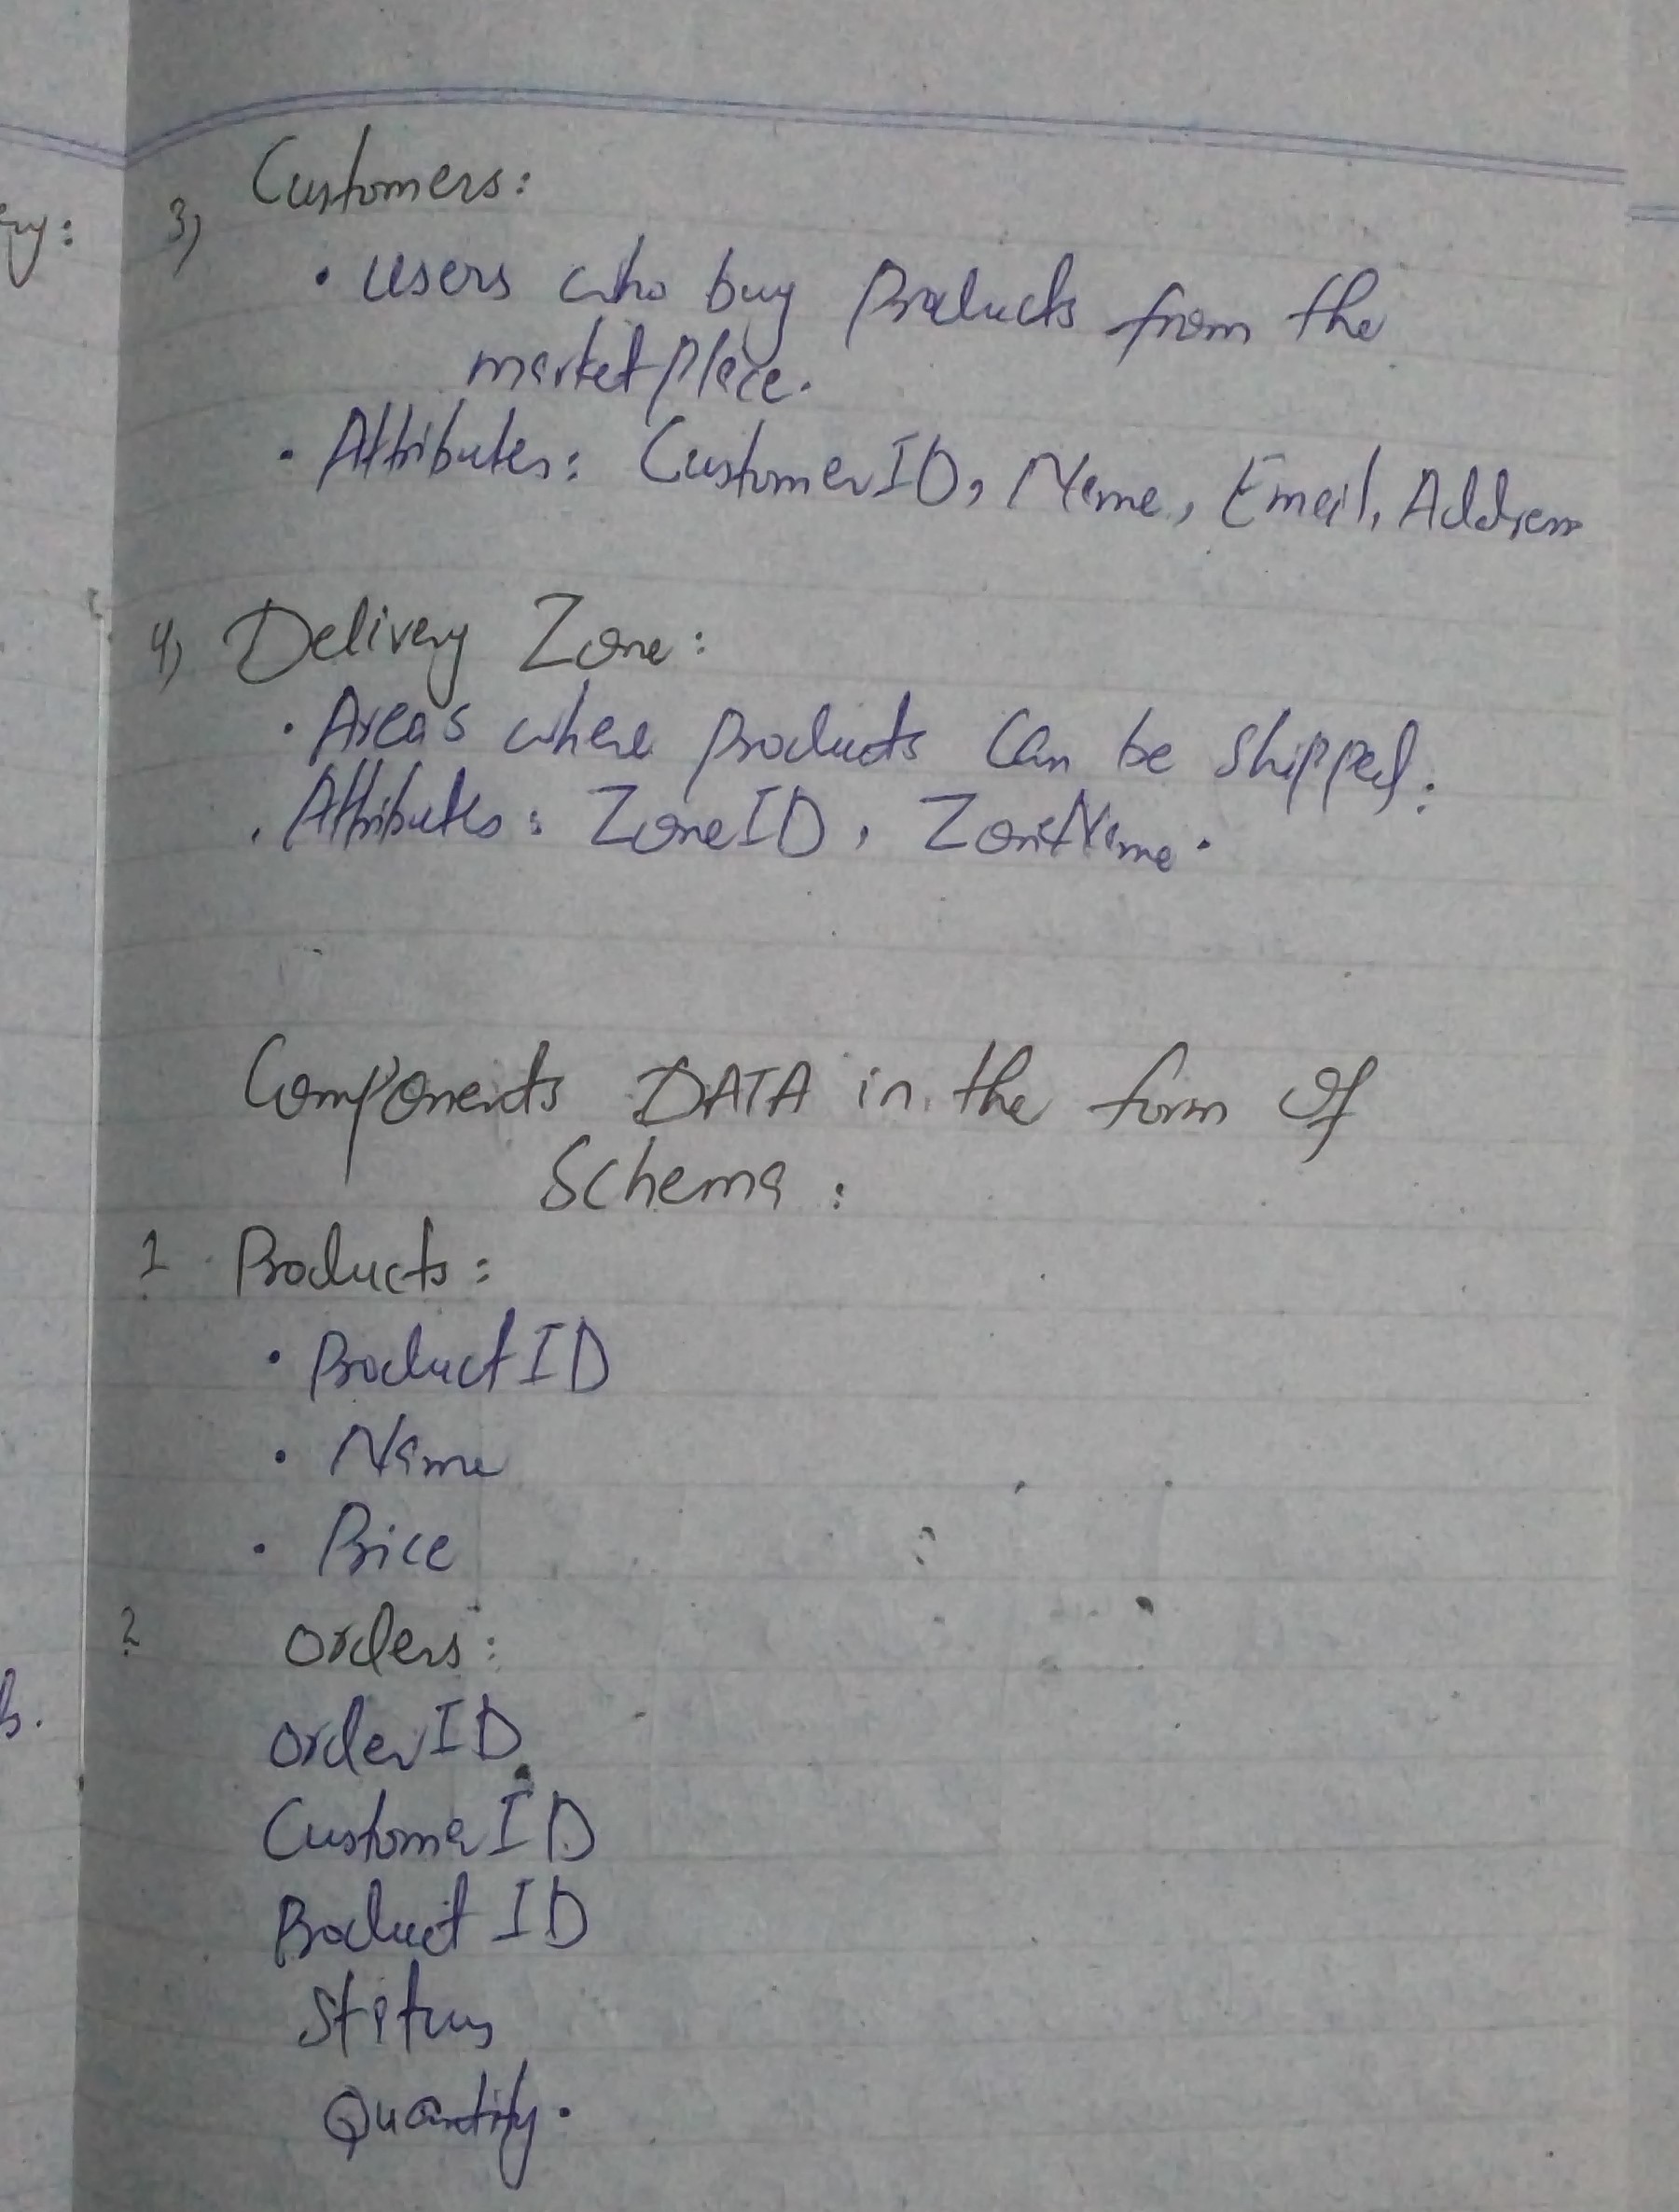 3) Customers:
• Users who buy Products from the
marketplace.
• Attributes: CustomerID, Name, Email, Address
4) Delivery Zone:
• Areas where products Can be shipped.
• Attributes: ZoneID, ZoneName.
Components DATA in the form of
Schema:
1. Products:
• ProductID
• Name
• Price
2 orders:
orderID
CustomerID
Product ID
Status
Quantity.